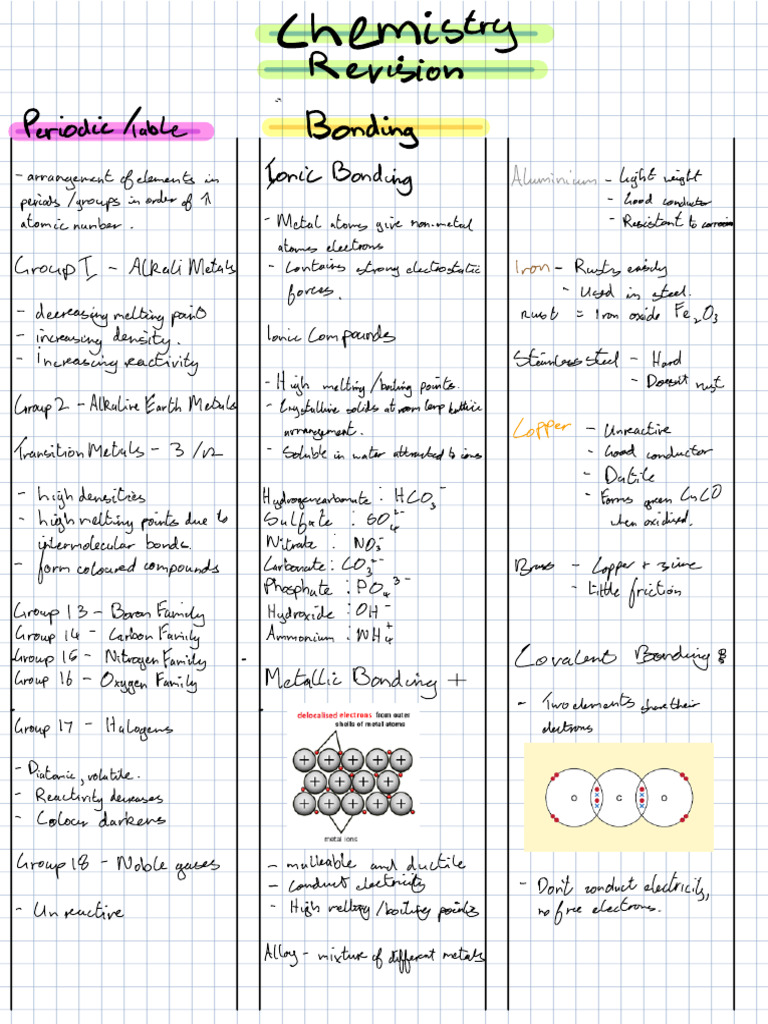 Chemistry
Revision
Periodic Table
- arrangement of elements in
periods/groups in order of ↑
atomic number.
Group I - Alkali Metals
- decreasing melting point
- increasing density.
- Increasing reactivity
Group 2 - Alkaline Earth Metals
Transition Metals - 3/12
- high densities
- high melting points due to
intermolecular bonds.
- form coloured compounds
Group 13 - Boron Family
Group 14 - Carbon Family
Group 15 - Nitrogen Family
Group 16 - Oxygen Family
Group 17 - Halogens
- Diatomic, volatile.
- Reactivity decreases
- Colour darkens
Group 18 - Noble gases
- Unreactive
Bonding
Ionic Bonding
- Metal atoms give non-metal
atoms electrons
- Contains strong electrostatic
forces.
Ionic Compounds
- High melting/boiling points.
- Crystalline solids at room temp lattice
arrangement.
- Soluble in water attracted to ions
Hydrogencarbonate : HCO₃⁻
Sulfate : SO₄²⁻
Nitrate : NO₃⁻
Carbonate : CO₃²⁻
Phosphate : PO₄³⁻
Hydroxide : OH⁻
Ammonium : NH₄⁺
Metallic Bonding +
delocalised electrons from outer
shells of metal atoms
+ + + + +
+ + + +
+ + + + +
metal ions
- malleable and ductile
- conduct electricity
- High melting/boiling points
Alloy - mixture of different metals
Aluminium - Light weight
- Good conductor
- Resistant to corrosion
Iron - Rusts easily
- Used in steel.
rust = Iron oxide Fe₂O₃
Stainless steel - Hard
- Doesn't rust
Copper - Unreactive
- Good conductor
- Dutile
- Forms green CuCO
when oxidised.
Brass - Copper + zinc
- Little friction
Covalent Bonding :
- Two elements share their
electrons
O C O
- Don't conduct electricity,
no free electrons.